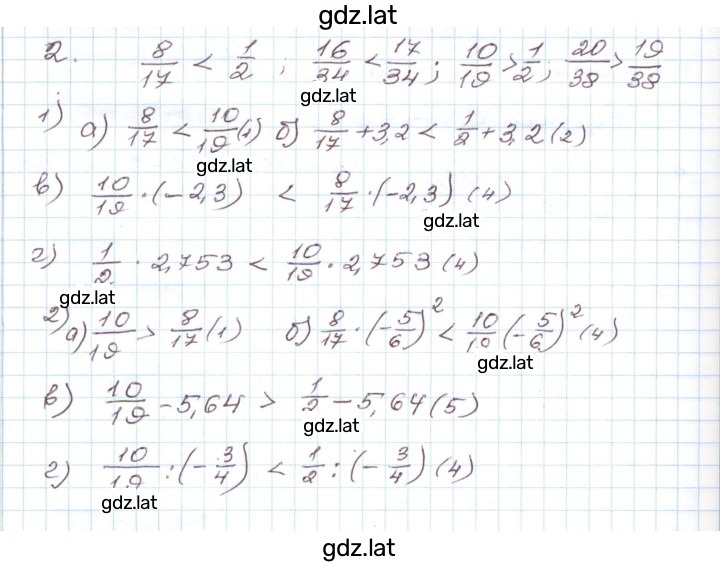 gdz.lat
2. 8/17 < 1/2 ; 16/34 < 17/34 ; 10/19 > 1/2 ; 20/38 > 19/38
gdz.lat
1) а) 8/17 < 10/19 (1) б) 8/17 + 3,2 < 1/2 + 3,2 (2)
gdz.lat
в) 10/19 · (-2,3) < 8/17 · (-2,3) (4)
gdz.lat
г) 1/2 · 2,753 < 10/19 · 2,753 (4)
gdz.lat
2) а) 10/19 > 8/17 (1) б) 8/17 · (-5/6)² < 10/19 (-5/6)² (4)
gdz.lat
в) 10/19 - 5,64 > 1/2 - 5,64 (5)
gdz.lat
г) 10/19 : (-3/4) < 1/2 : (-3/4) (4)
gdz.lat
gdz.lat